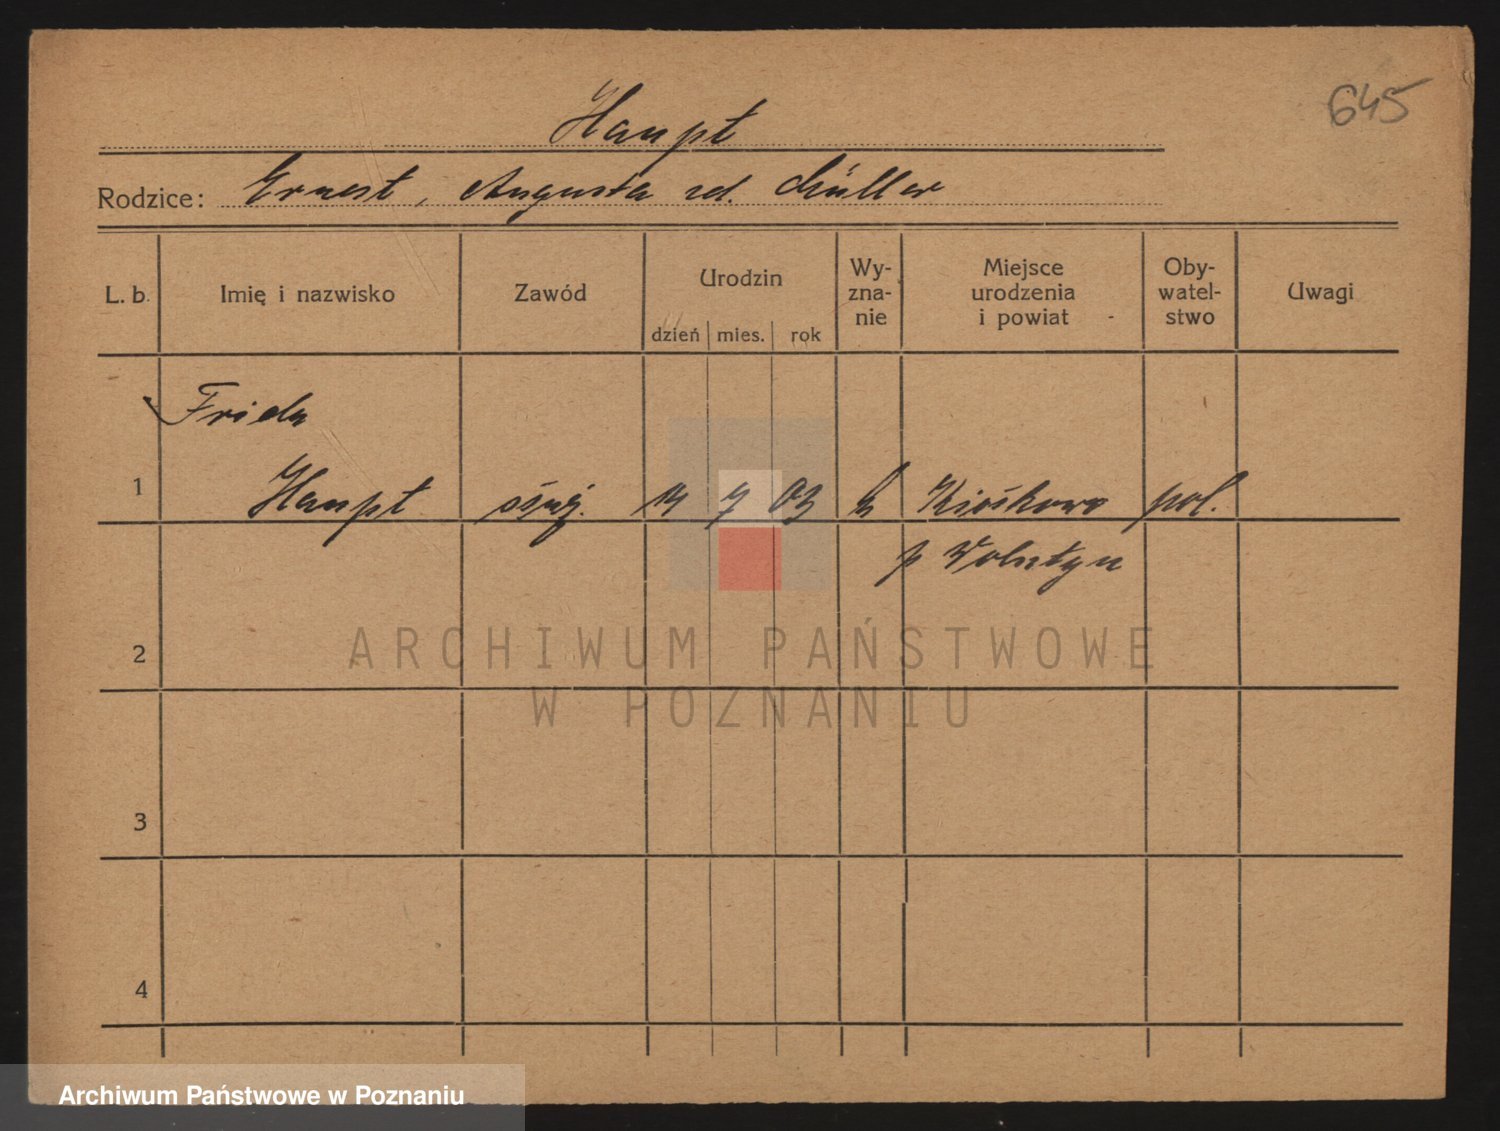 645
Haupt
Rodzice: Ernest, Augusta zd. Müller
L. b. Imię i nazwisko Zawód Urodzin dzień mies. rok Wy-zna-nie Miejsce urodzenia i powiat Oby-watel-stwo Uwagi
Frida
1 Haupt 14 7 03 Kiełkowo pol.
p Wolsztyn
2
ARCHIWUM PAŃSTWOWE
W POZNANIU
3
4
Archiwum Państwowe w Poznaniu